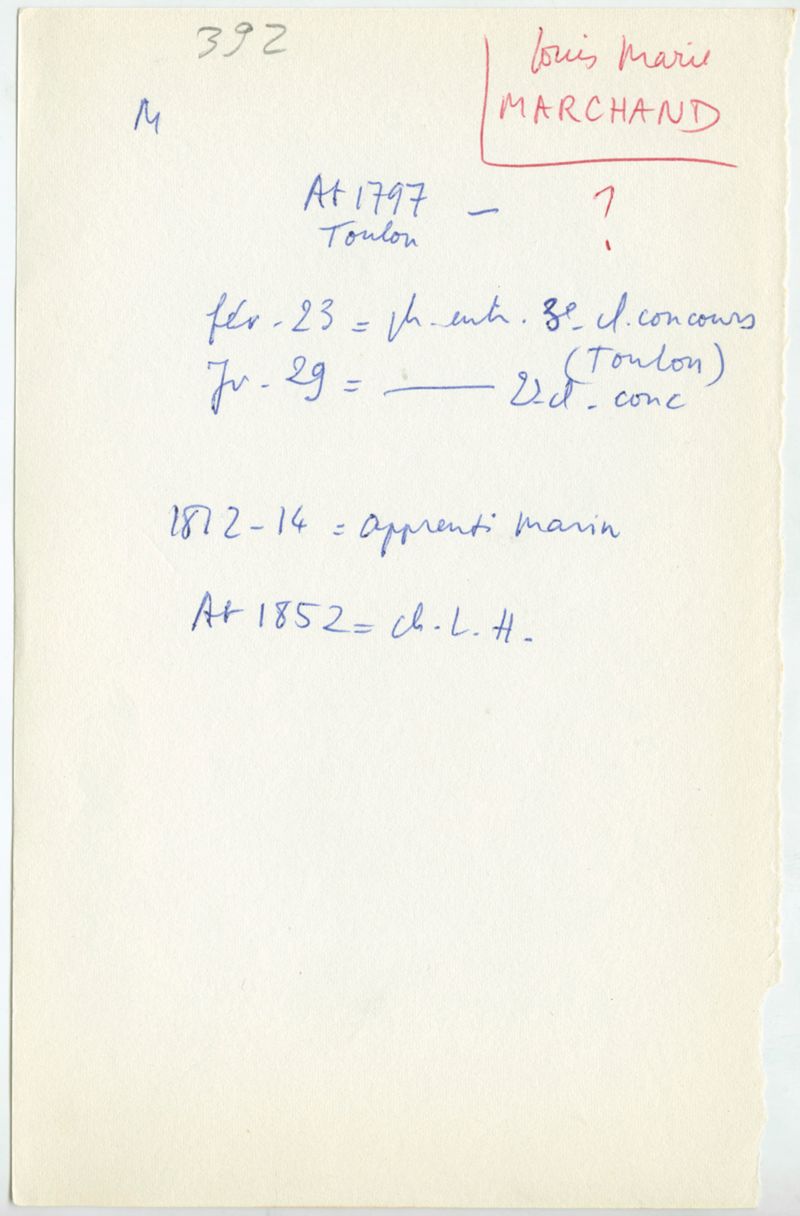 392
Louis Marie
MARCHAND
M
At 1797 — ?
Toulon
fév. 23 = ph. entr. 3e cl. concours
(Toulon)
Jv. 29 = ——— 2 cl. conc
1812-14 = apprenti marin
At 1852 = ch. L. H.